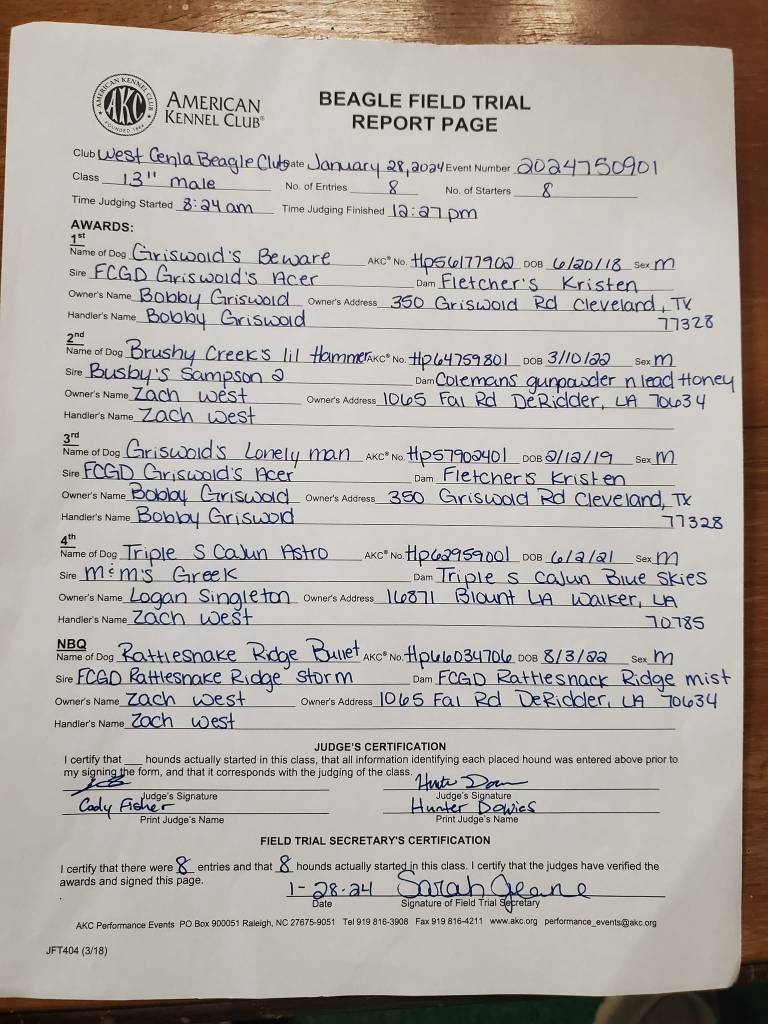 AMERICAN KENNEL CLUB
AKC
FOUNDED 1884
AMERICAN
KENNEL CLUB®
BEAGLE FIELD TRIAL
REPORT PAGE
Club West Cenla Beagle Club Date January 28, 2024 Event Number 2024750901
Class 13" male No. of Entries 8 No. of Starters 8
Time Judging Started 8:24 am Time Judging Finished 12:27 pm
AWARDS:
1st
Name of Dog Griswold's Beware AKC® No. Hp56177902 DOB 6/20/18 Sex m
Sire FCGD Griswold's Acer Dam Fletcher's Kristen
Owner's Name Bobby Griswold Owner's Address 350 Griswold Rd Cleveland, TX
Handler's Name Bobby Griswold 77328
2nd
Name of Dog Brushy Creek's lil Hammer AKC® No. Hp64759801 DOB 3/10/22 Sex M
Sire Busby's Sampson 2 Dam Colemans gunpowder n lead Honey
Owner's Name Zach West Owner's Address 1065 Fal Rd DeRidder, LA 70634
Handler's Name Zach West
3rd
Name of Dog Griswold's Lonely man AKC® No. Hp57902401 DOB 2/12/19 Sex M
Sire FCGD Griswold's Acer Dam Fletchers Kristen
Owner's Name Bobby Griswold Owner's Address 350 Griswold Rd Cleveland, TX
Handler's Name Bobby Griswold 77328
4th
Name of Dog Triple S Cajun Astro AKC® No. Hp62959001 DOB 6/2/21 Sex M
Sire M&M's Greek Dam Triple S Cajun Blue Skies
Owner's Name Logan Singleton Owner's Address 16871 Blount LA Walker, LA
Handler's Name Zach West 70785
NBQ
Name of Dog Rattlesnake Ridge Bullet AKC® No. Hp66034706 DOB 8/3/22 Sex M
Sire FCGD Rattlesnake Ridge Storm Dam FCGD Rattlesnack Ridge mist
Owner's Name Zach West Owner's Address 1065 Fal Rd DeRidder, LA 70634
Handler's Name Zach West
JUDGE'S CERTIFICATION
I certify that ___ hounds actually started in this class, that all information identifying each placed hound was entered above prior to
my signing the form, and that it corresponds with the judging of the class.
Judge's Signature Judge's Signature
Cody Fisher Hunter Dowies
Print Judge's Name Print Judge's Name
FIELD TRIAL SECRETARY'S CERTIFICATION
I certify that there were 8 entries and that 8 hounds actually started in this class. I certify the judges have verified the
awards and signed this page.
1-28-24 Sarah Jeane
Date Signature of Field Trial Secretary
AKC Performance Events PO Box 900051 Raleigh, NC 27675-9051 Tel 919 816-3908 Fax 919 816-4211 www.akc.org performance_events@akc.org
JFT404 (3/18)